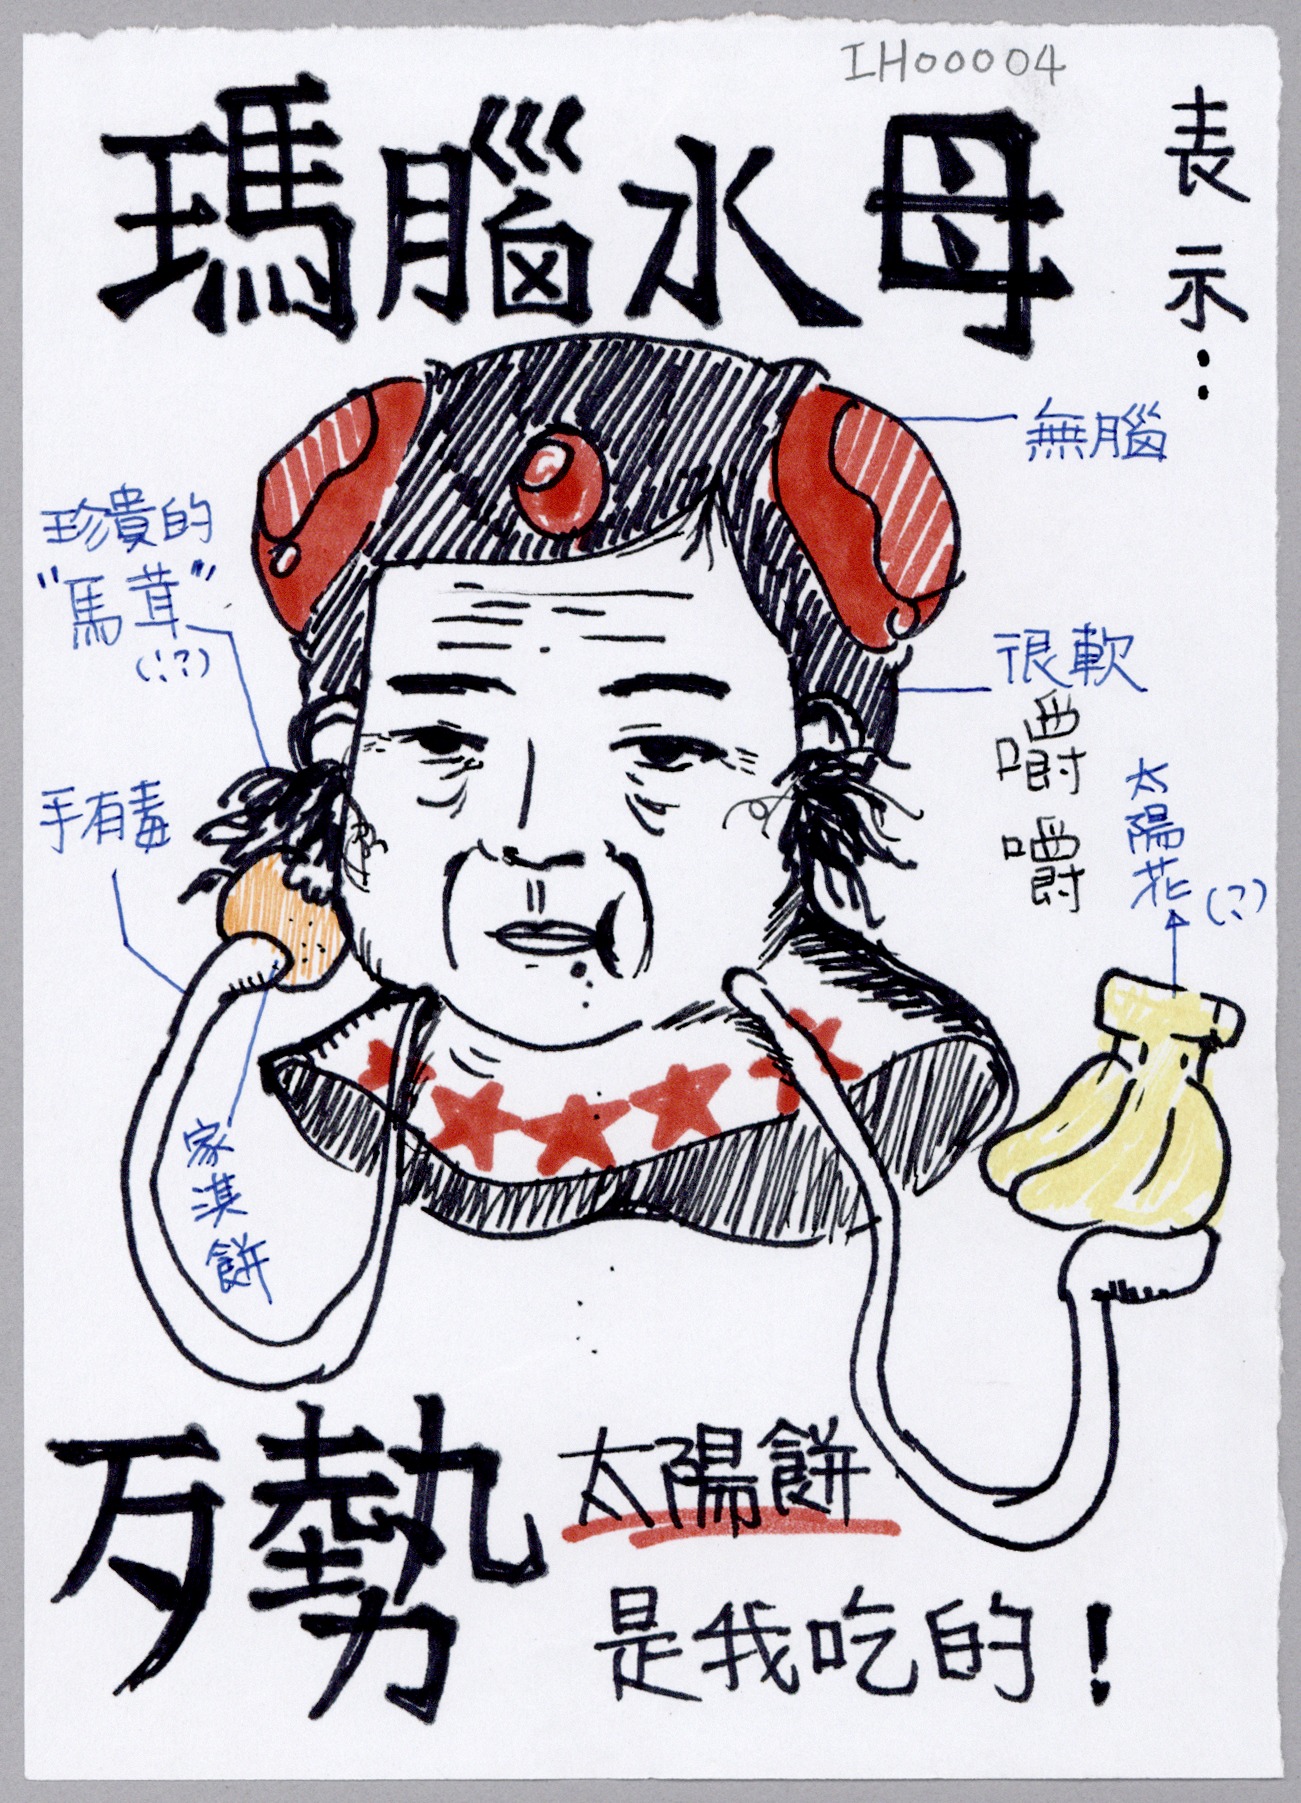 IH00004
瑪腦水母
表示：
無腦
珍貴的
"馬茸"
(:?)
很軟
嚼嚼
手有毒
太陽花(?)
家淇餅
歹勢
太陽餅
是我吃的！